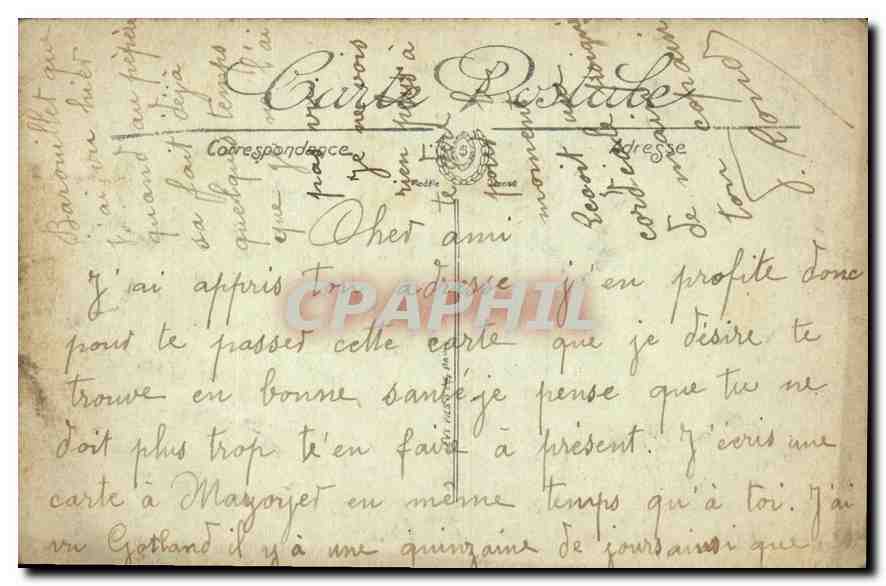 Carte Postale
Correspondance
Adresse
Cher ami
J'ai appris ton adresse j'en profite donc
pour te passer cette carte que je désire te
trouve en bonne santé je pense que tu ne
doit plus trop te'en faire à présent. J'écris une
carte à Mazoyer en même temps qu'à toi. J'ai
vu Gotland il y à une quinzaine de jours ainsi que
Barouillet que
j'ai vu hier
quand au pépère
sa fait déjà
quelques temps
que je ne l'ai
pas vu
Je ne vois
rien plus à
te dire
pour le
moment
Recoit une
cordiale poignée
de main
ton copain
CPAPHIL